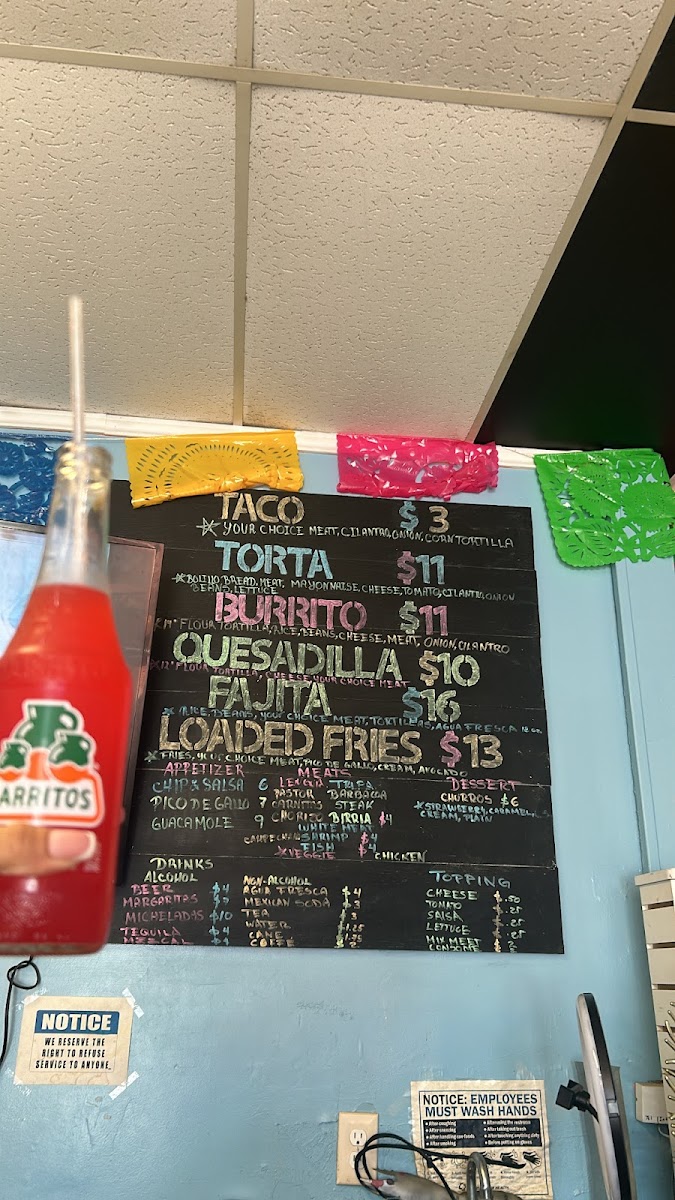 TACO $3
YOUR CHOICE MEAT, CILANTRO, ONION, CORN TORTILLA
TORTA $11
BOLILLO BREAD, MEAT, MAYONNAISE, CHEESE, TOMATO, CILANTRO, ONION
BEANS, LETTUCE
BURRITO $11
FLOUR TORTILLA, RICE, BEANS, CHEESE, MEAT, ONION, CILANTRO
QUESADILLA $10
12" FLOUR TORTILLA, CHEESE YOUR CHOICE MEAT
FAJITA $16
RICE, BEANS, YOUR CHOICE MEAT, TORTILLAS, AGUA FRESCA 12 oz.
LOADED FRIES $13
FRIES, YOUR CHOICE MEAT, PICO DE GALLO, CREAM, AVOCADO
APPETIZER
CHIP & SALSA 6
PICO DE GALLO 7
GUACAMOLE 9
MEATS
LENGUA TRIPA
PASTOR BARBACOA
CARNITAS STEAK
CHORIZO BIRRIA $4
CAMPECHANO WHITE MEAT
SHRIMP $4
FISH $4
VEGGIE CHICKEN
DESSERT
CHURROS $6
STRAWBERRY, CARAMEL,
CREAM, PLAIN
DRINKS
ALCOHOL
BEER $4
MARGARITAS
MICHELADAS $10
TEQUILA
MEZCAL
NON-ALCOHOL
AGUA FRESCA $4
MEXICAN SODA 3
TEA 3
WATER
CANE
COFFE
TOPPING
CHEESE .50
TOMATO .25
SALSA .25
LETTUCE .25
MIX MEET
CONSOME
ARRITOS
NOTICE
WE RESERVE THE
RIGHT TO REFUSE
SERVICE TO ANYONE.
NOTICE: EMPLOYEES
MUST WASH HANDS
After coughing
After sneezing
After handling raw foods
After smoking
After using the restroom
After taking out trash
After touching anything dirty
Before putting on gloves